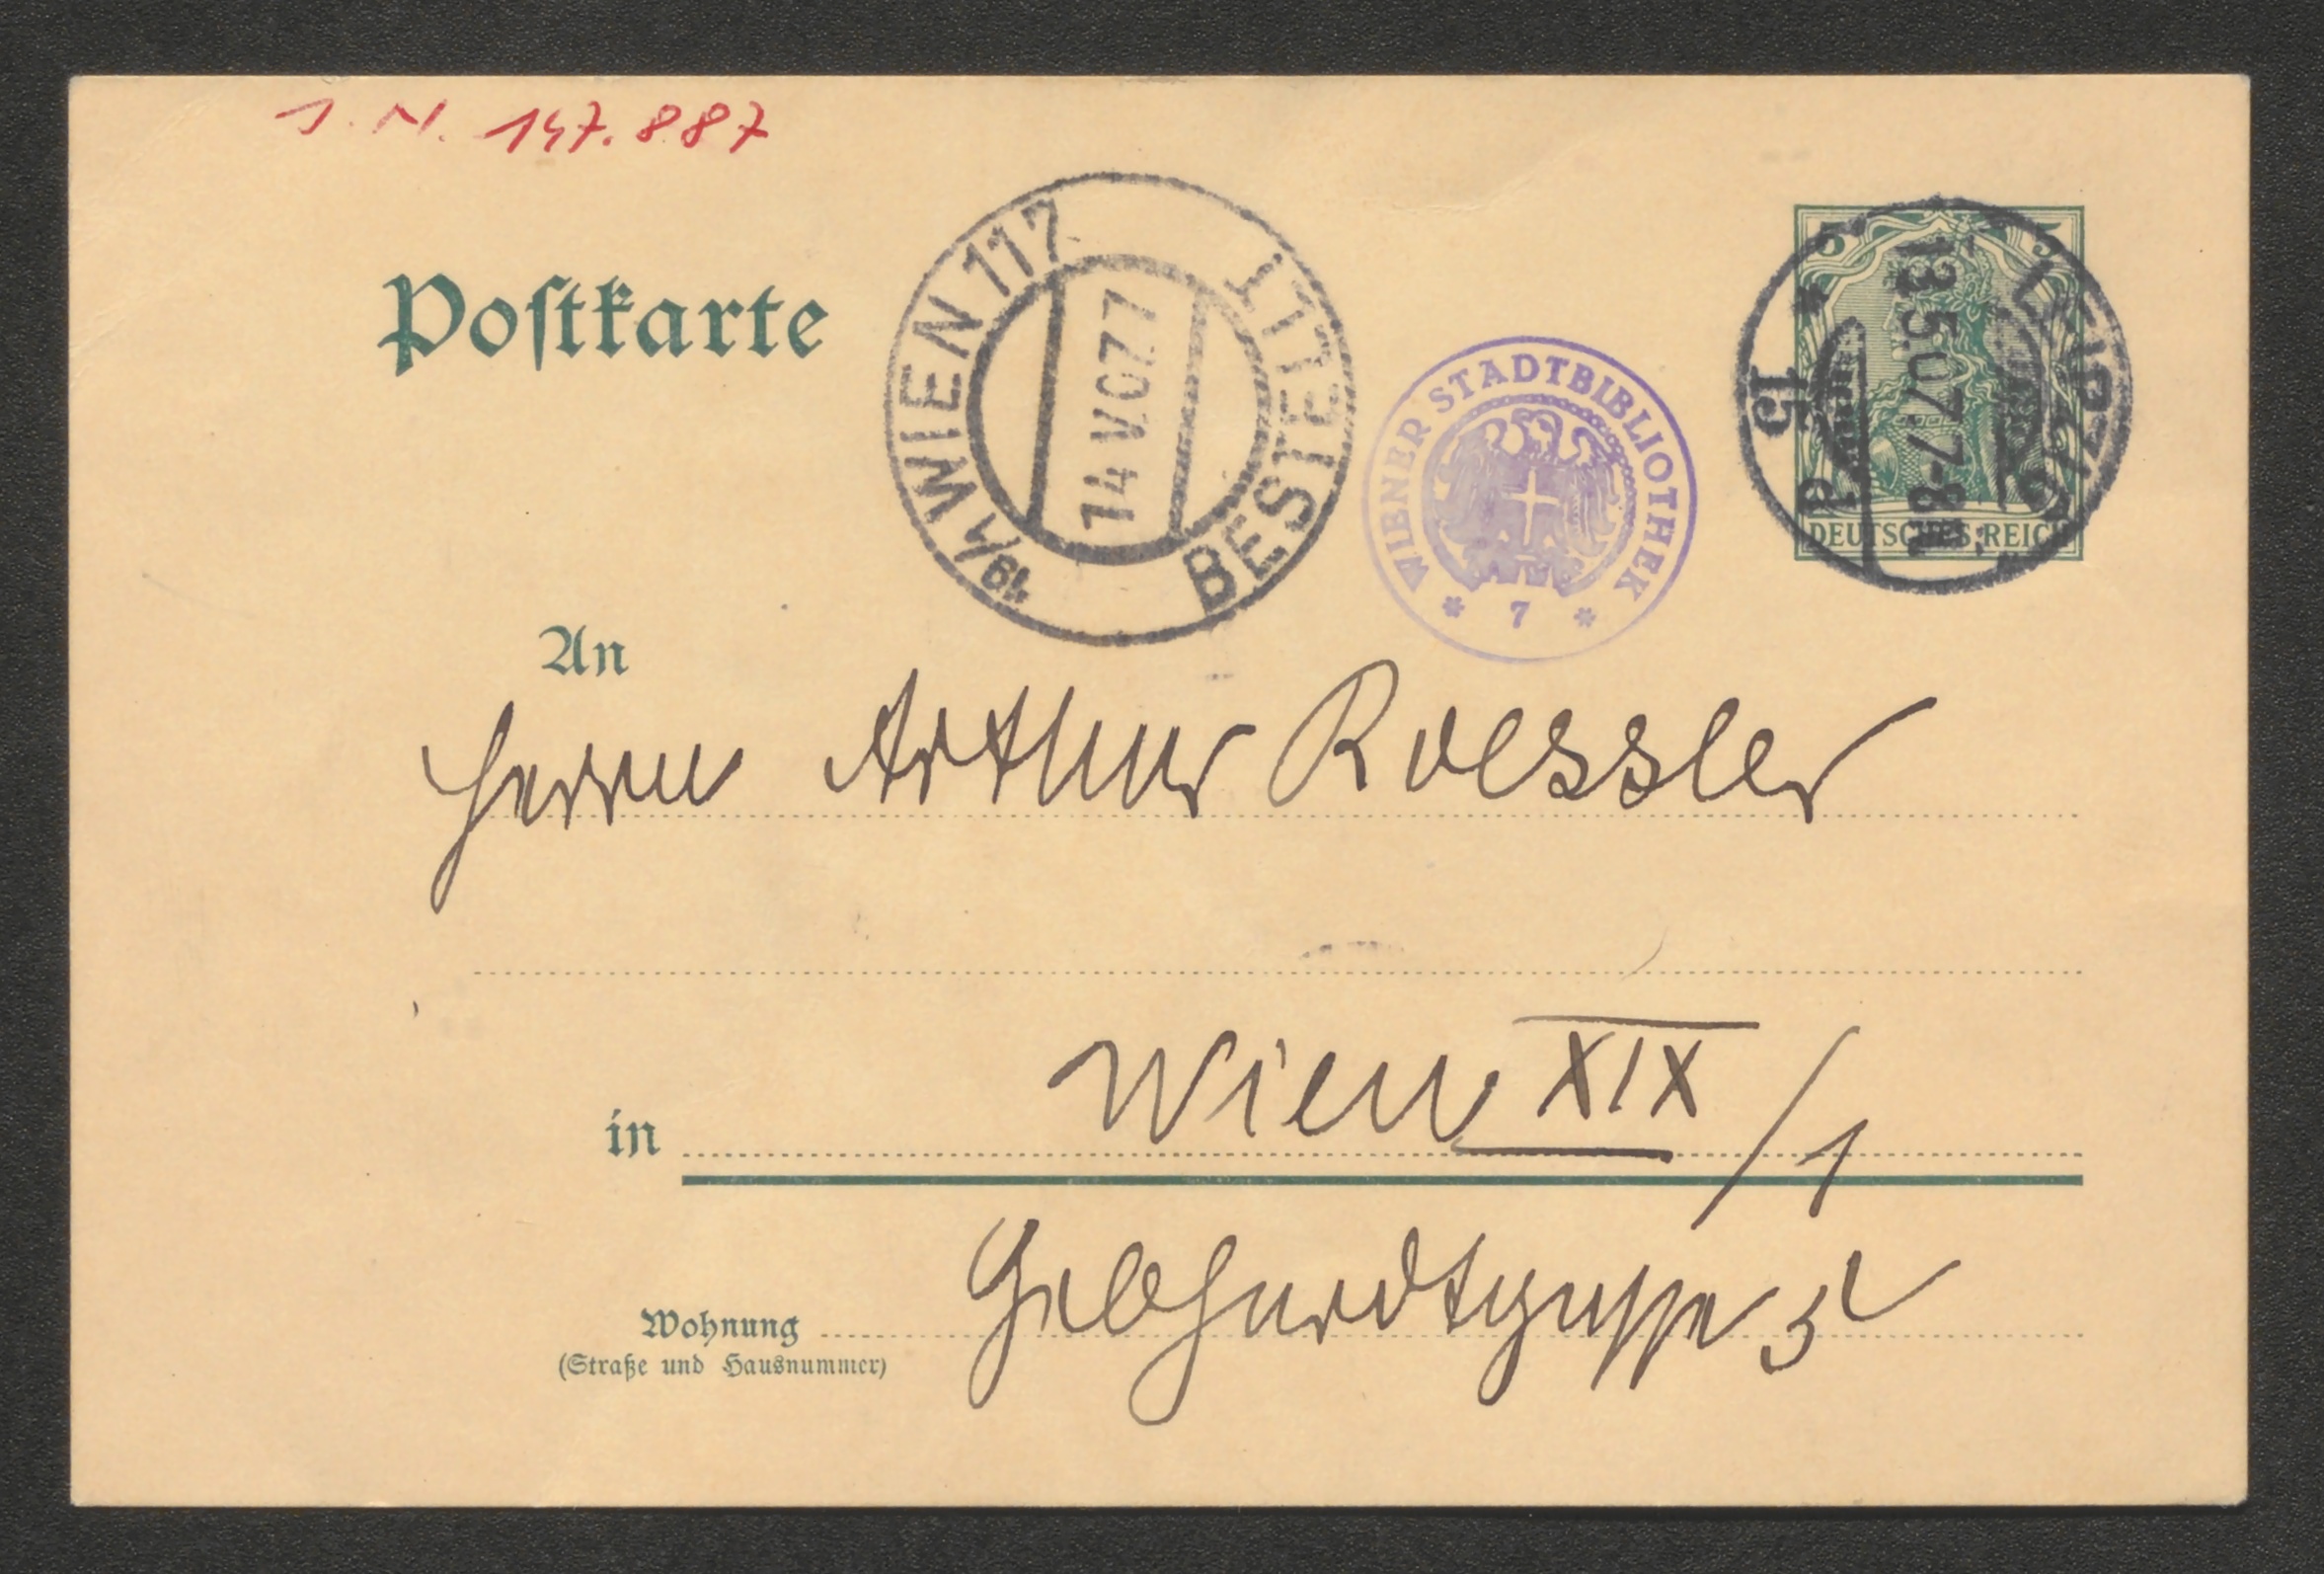 J. N. 147.887
Postkarte
WIEN 117
BESTELLT
14 V 07 7
WIENER STADTBIBLIOTHEK
* 7 *
5 5
LEIPZIG
13.5.07.7-8N.
* 15 d
DEUTSCHES REICH
An
Herrn Arthur Roessler
in Wien XIX/1
Wohnung
(Straße und Hausnummer)